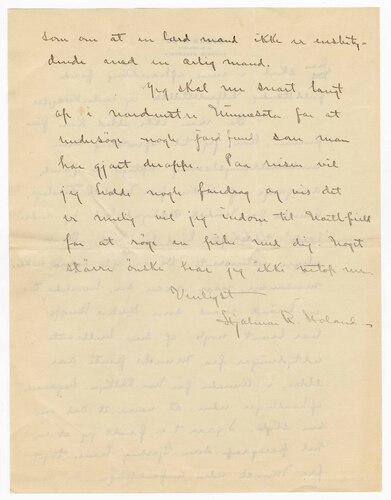 som om at en lærd mand ikke er ensbety-
dende med en ærlig mand.
Jeg skal nu snart langt
op i nordvestre Minnesota for at
undersöge nogle fund som man
har gjort deroppe. Paa reisen vil
jeg holde nogle foredrag og vis det
er mulig vil jeg indom til Northfield
for at röge en pibe med dig. Noget
större önske har jeg ikke netop nu.
Venligst
Hjalmar R. Holand